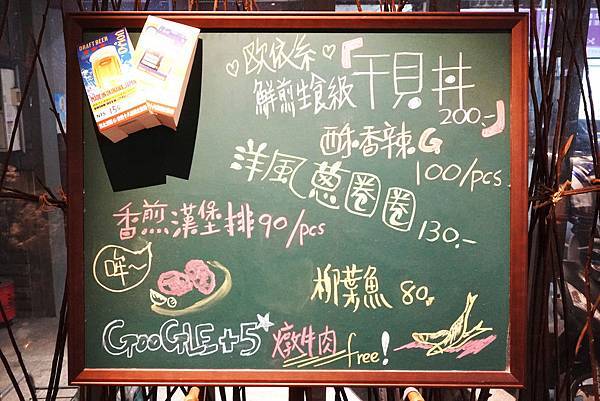 DRAFT BEER
MADE IN OKINAWA, JAPAN
♡歐依糸♡
鮮煎生食級『干貝丼』
200.-
酥香辣G
100/pcs
洋風蔥圈圈 130.-
香煎漢堡排 90/pcs
哞~
柳葉魚 80.
GOOGLE+5☆ 燉牛肉 free!